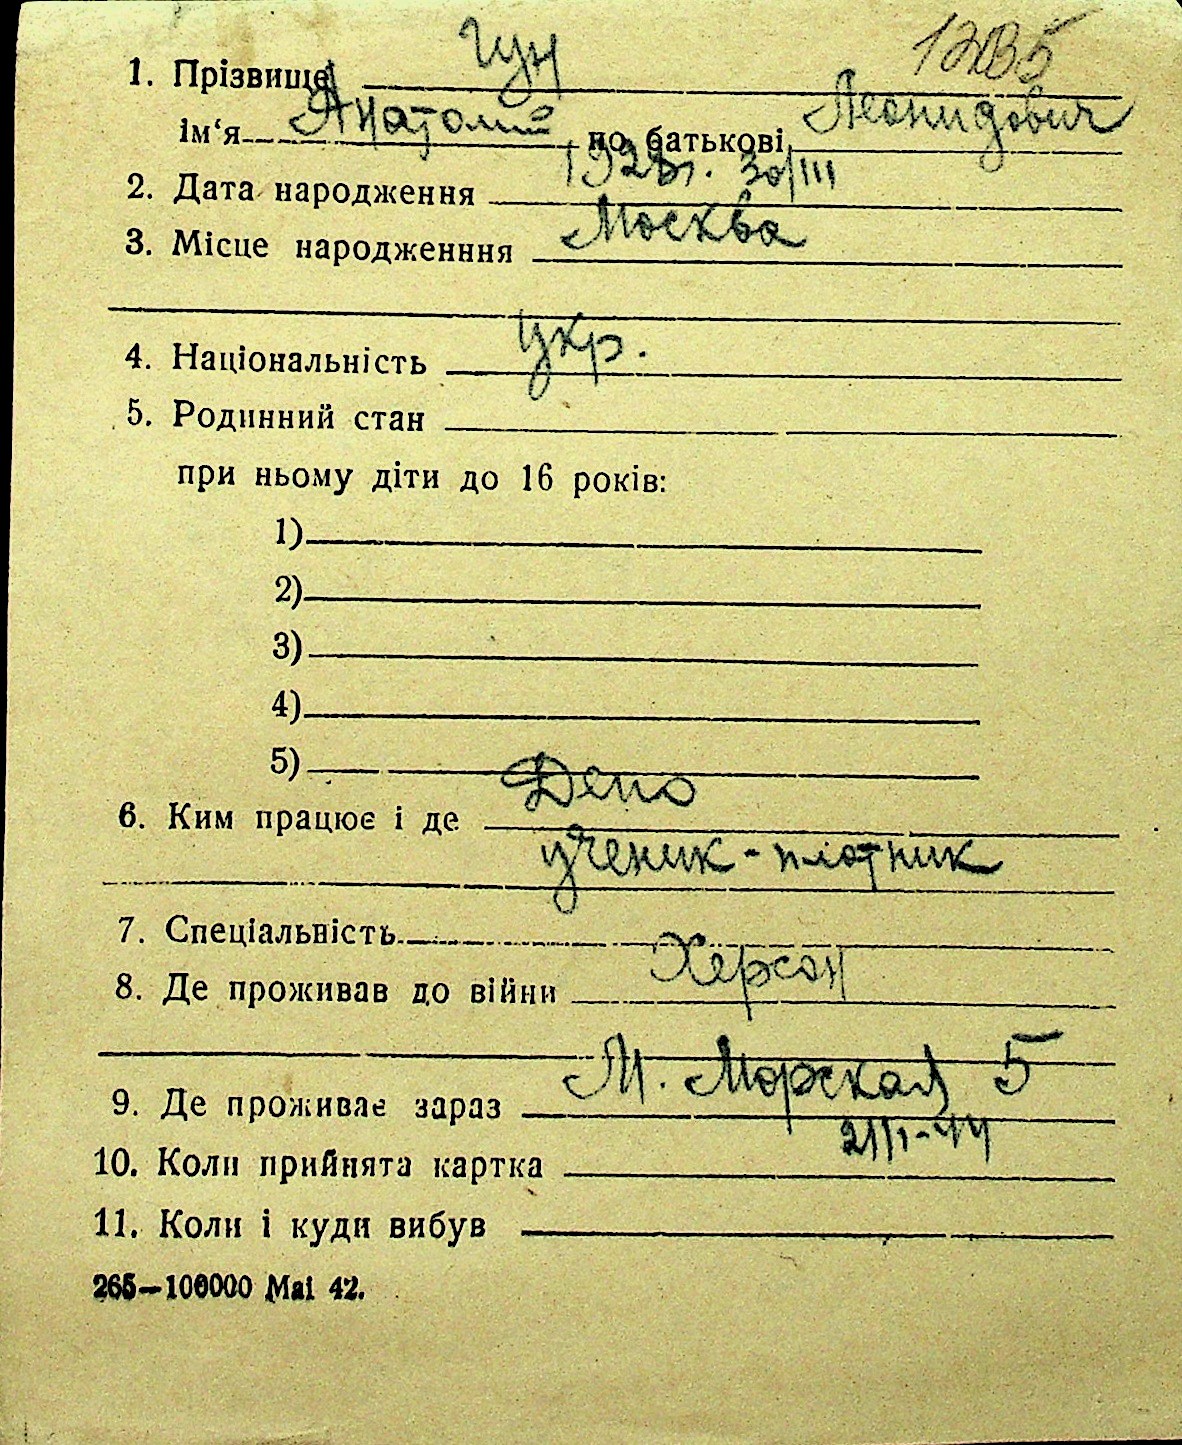 1. Прізвище Гун
ім‘я Анатолий по батькові Леонидович
2. Дата народження 1928г. 30/III
3. Місце народженння Москва
4. Національність укр.
5. Родинний стан
при ньому діти до 16 років:
1)
2)
3)
4)
5)
6. Ким працює і де Депо
ученик-плотник
7. Спеціальність
8. Де проживав до війни Херсон
9. Де проживає зараз М. Морская 5
10. Коли прийнята картка
11. Коли і куди вибув
265—100000 Mai 42.